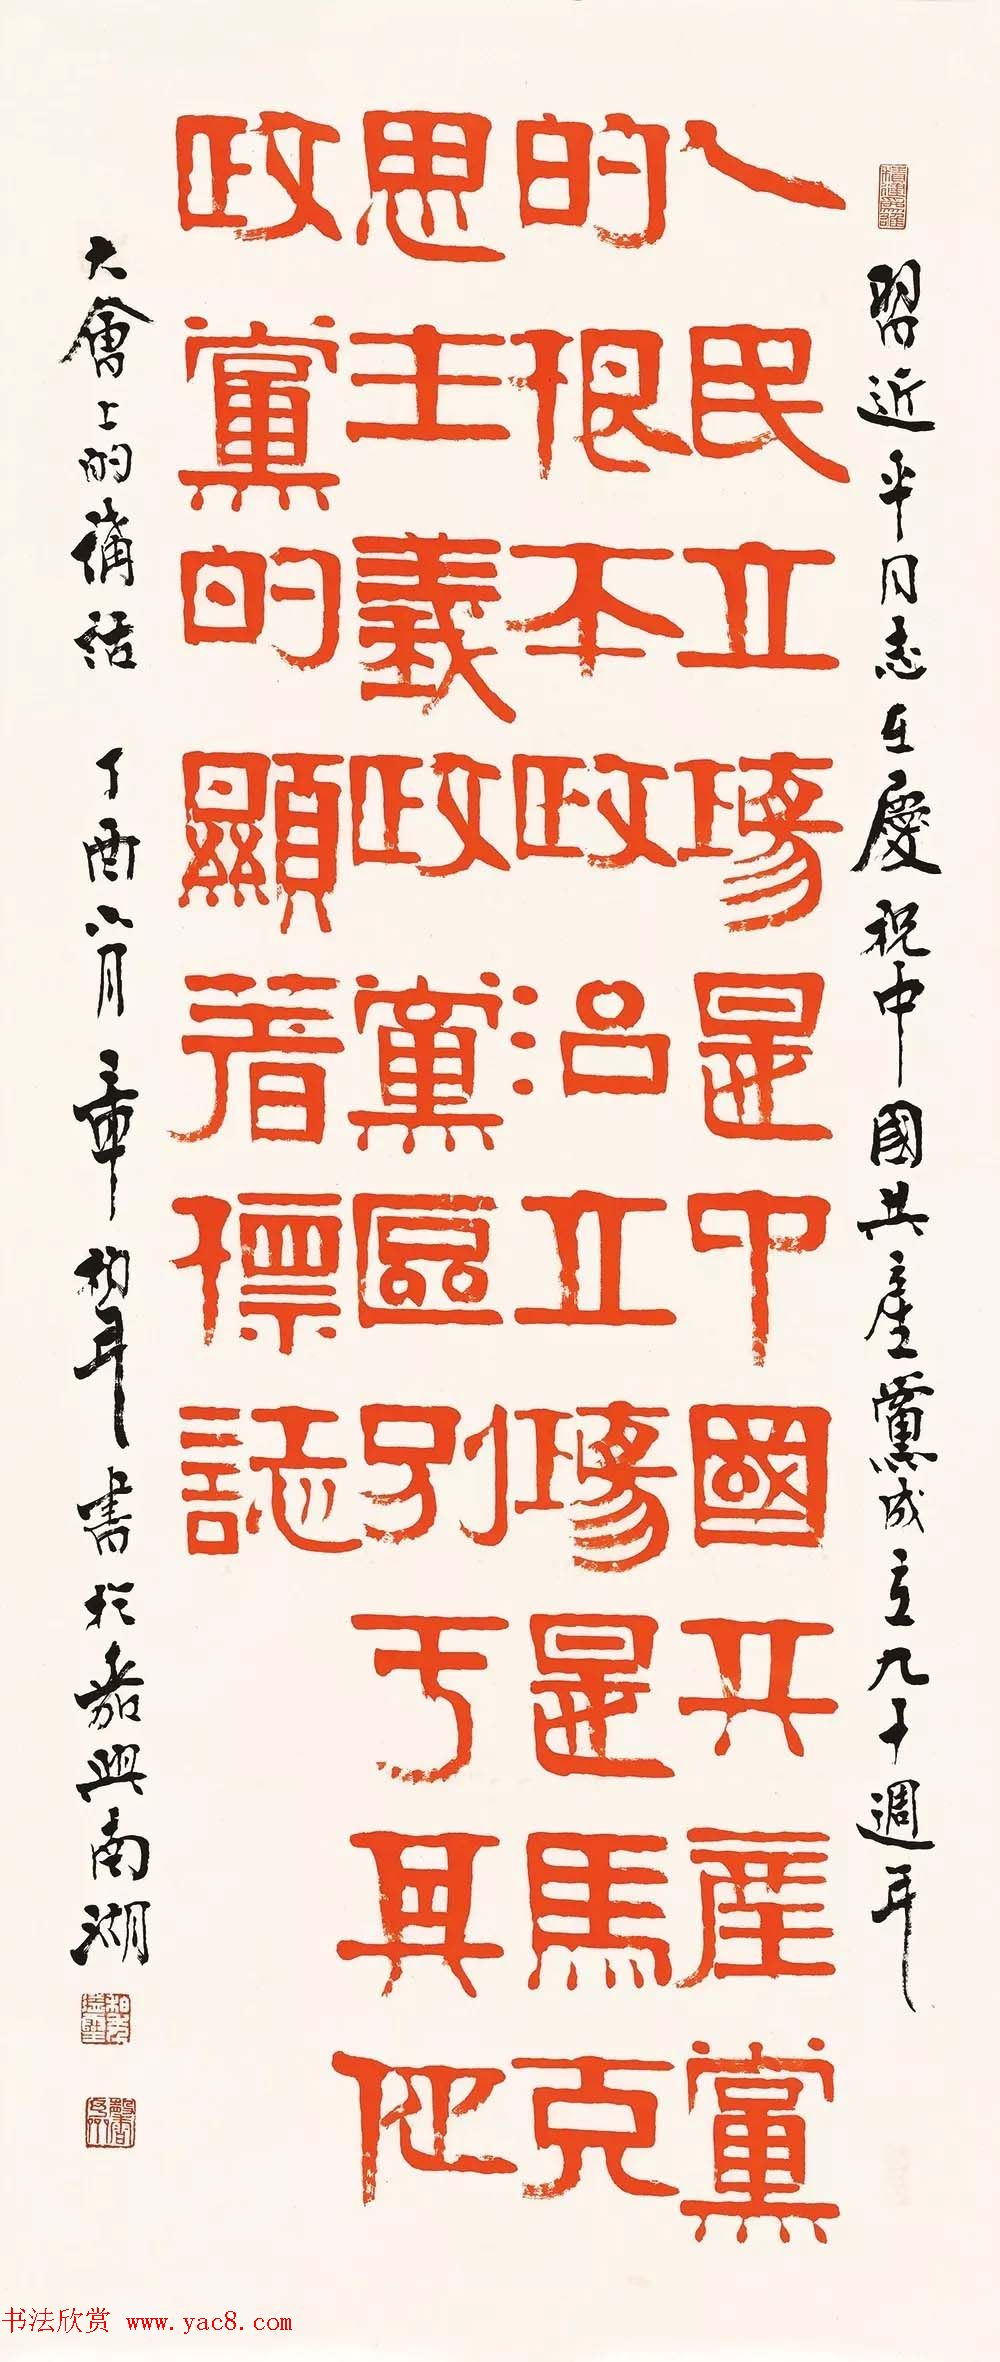 習近平同志在慶祝中國共產黨成立九十週年
人民立場是中國共產黨
的根本政治立場是馬克
思主義政黨區别于其他
政黨的顯著標誌
大會上的講話 丁酉八月 章柏年書於嘉興南湖
书法欣赏 www.yac8.com